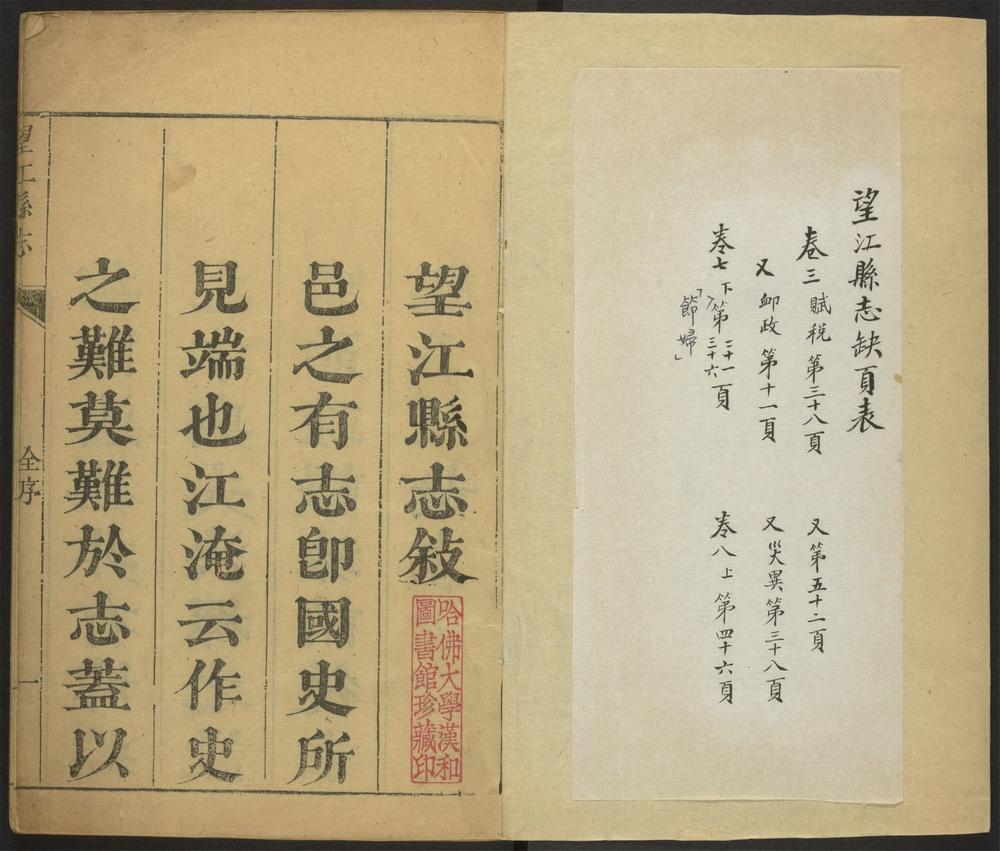 望江縣志缺頁表
卷三 賦稅 第三十八頁
又第五十二頁
又 卹政 第十一頁
又災異第三十八頁
卷七下第二十一 三十六頁
「節婦」
卷八上第四十六頁
望江縣志敍
哈佛大學漢和
圖書館珍藏印
邑之有志卽國史所
見端也江淹云作史
之難莫難於志蓋以
望江縣志
全序
一